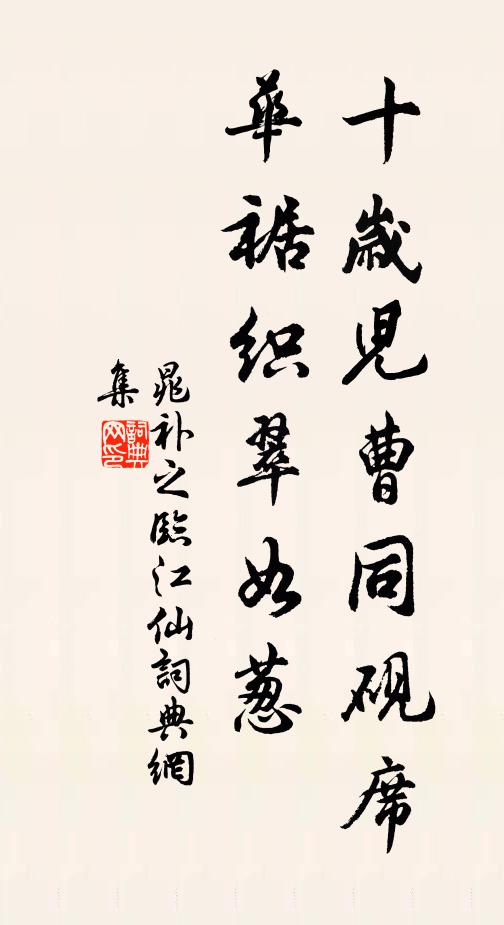 十歲児曹同硯席
華裾织翠如葱
晁补之臨江仙詞典網
集
詞典
网印